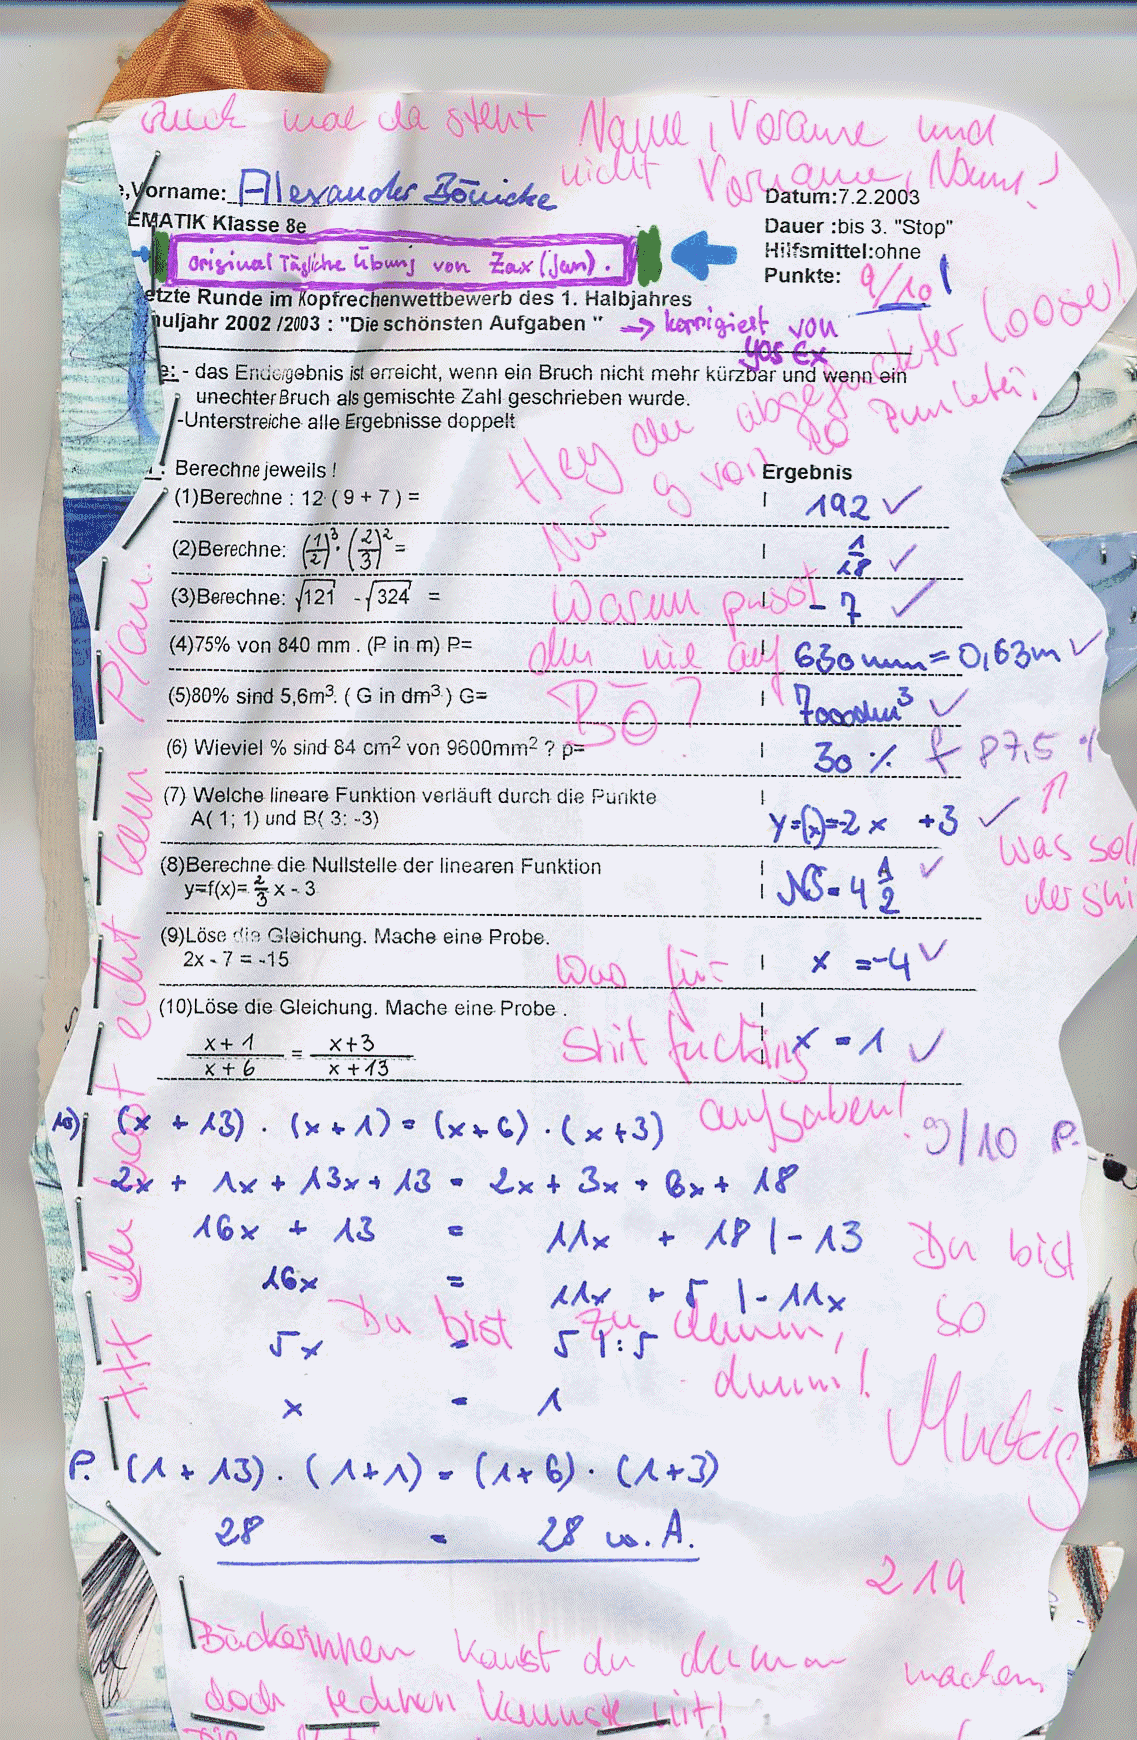 Guck mal da steht Name, Vorname und
nicht Vorname, Name!
e,Vorname: Alexander Bönicke
Datum:7.2.2003
EMATIK Klasse 8e
Dauer :bis 3. "Stop"
original Tägliche Übung von Zax (Jan).
Hilfsmittel:ohne
Punkte: 9/10
etzte Runde im Kopfrechenwettbewerb des 1. Halbjahres
huljahr 2002 /2003 : "Die schönsten Aufgaben "
→ korrigiert von
yos Ex
e: - das Endergebnis ist erreicht, wenn ein Bruch nicht mehr kürzbar und wenn ein
unechter Bruch als gemischte Zahl geschrieben wurde.
-Unterstreiche alle Ergebnisse doppelt
Hey du abgefuckter looser!
Nur 9 von 20 Punkten,
Warum passt
du nie auf
Bö?
1. Berechne jeweils !
Ergebnis
(1)Berechne : 12·( 9 + 7 ) =
192 ✓
(2)Berechne: (1/2)³ · (2/3)² =
1/18 ✓
(3)Berechne: √121 - √324 =
- 7 ✓
(4)75% von 840 mm . (P in m) P=
630mm = 0,63m ✓
(5)80% sind 5,6m³. ( G in dm³ ) G=
7000dm³ ✓
(6) Wieviel % sind 84 cm² von 9600mm² ? p=
30 % f 87,5 %
(7) Welche lineare Funktion verläuft durch die Punkte
A( 1; 1) und B( 3; -3)
y=f(x)=-2x +3 ✓
↑
Was soll
der shi
(8)Berechne die Nullstelle der linearen Funktion
y=f(x)= 2/3 x - 3
NS = 4 1/2 ✓
(9)Löse die Gleichung. Mache eine Probe.
2x - 7 = -15
x = -4 ✓
(10)Löse die Gleichung. Mache eine Probe .
x + 1 / x + 6 = x+3 / x +13
x = 1 ✓
Was für
Shit fucking
aufgaben!
9/10 P.
10) (x + 13) · (x + 1) = (x + 6) · (x + 3)
2x + 1x + 13x + 13 = 2x + 3x + 6x + 18
16x + 13 = 11x + 18 | - 13
16x = 11x + 5 | - 11x
5x = 5 | : 5
x = 1
P. (1 + 13) · (1 + 1) = (1 + 6) · (1 + 3)
28 = 28 w. A.
Du bist zu dumm,
dumm!
Du bist
so
219
du hast echt kein Plan.
Bäckerinnen kannst du dumm machen,
doch rechnen kannste nit!